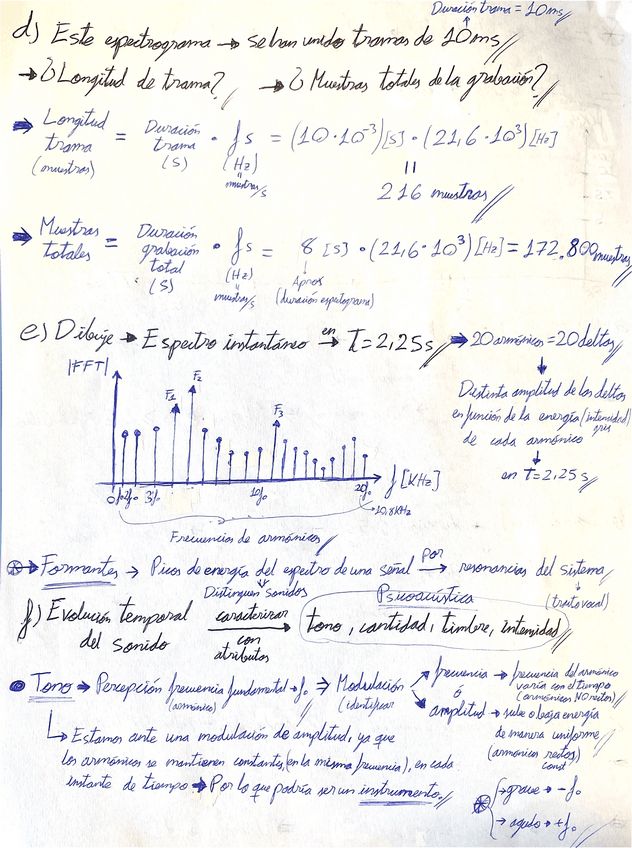 Duración trama = 10ms
d) Este espectrograma → se han unido tramas de 10ms
→ ¿Longitud de trama? → ¿Muestras totales de la grabación?
⇒ Longitud trama (muestras) = Duración trama (s) · fs (Hz) = (10·10⁻³)[s] · (21,6·10³)[Hz]
muestras/s
216 muestras
⇒ Muestras totales = Duración grabación total (s) · fs (Hz) = 8 [s] · (21,6·10³)[Hz] = 172.800 muestras
muestras/s
Aprox (duración espectrograma)
e) Dibuje → Espectro instantáneo en → T=2,25s ⇒ 20 armónicos = 20 deltas
|FFT|
F1 F2 F3
Distinta amplitud de las deltas
en función de la energía (intensidad)
gris
de cada armónico
en T=2,25s
f [KHz]
0 f₀ 2f₀ 3f₀ 10f₀ 20f₀
→ 10,8KHz
Frecuencias de armónicos
⊛→ Formantes → Picos de energía del espectro de una señal por → resonancias del sistema
Distinguen sonidos
(tracto vocal)
Psicoacústica
f) Evolución temporal del sonido caracterizar → con atributos tono, cantidad, timbre, intensidad
• Tono → Percepción frecuencia fundamental → f₀ ⇒ Modulación
(armónico) (identificar
frecuencia → frecuencia del armónico
varía con el tiempo
(armónicos NO rectos)
ó
amplitud → sube o baja energía
de manera uniforme
(armónicos rectos)
const
↳ Estamos ante una modulación de amplitud, ya que
los armónicos se mantienen constantes, (en la misma frecuencia), en cada
instante de tiempo → Por lo que podría ser un instrumento.
⊛ → grave → - f₀
→ agudo → + f₀